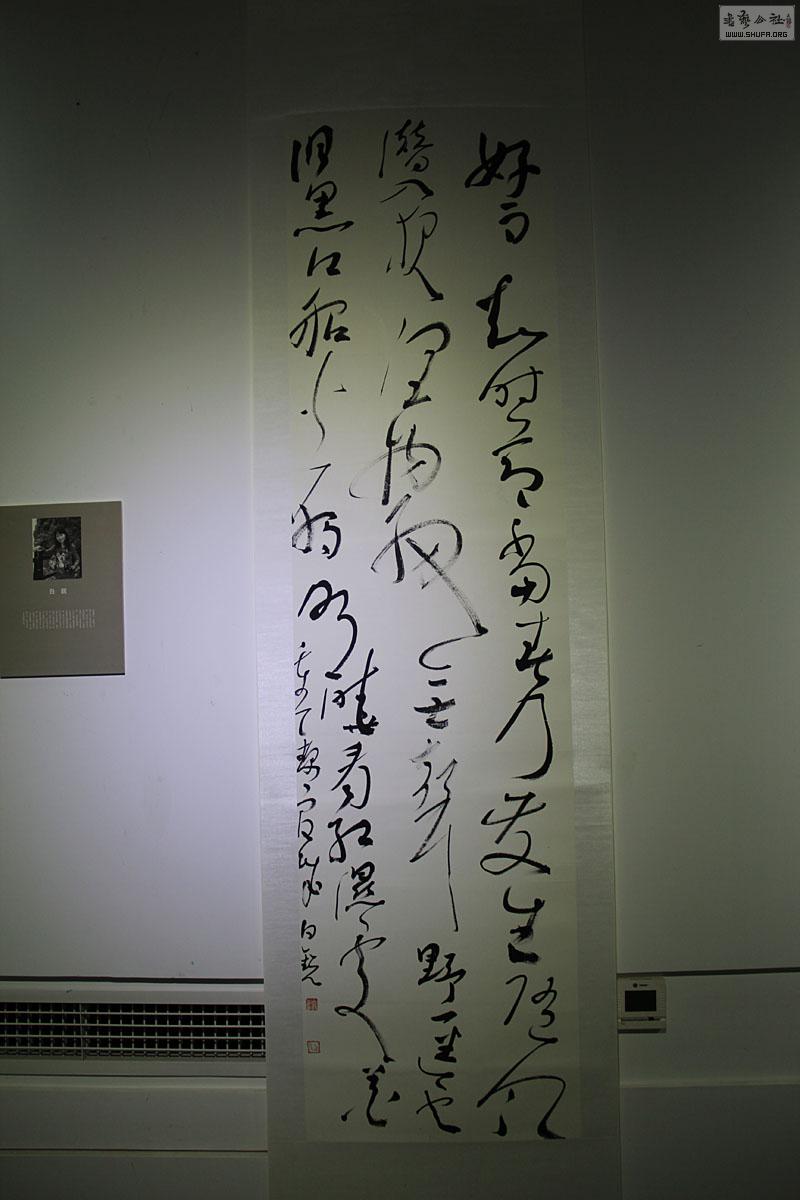 好雨知时节当春乃发生随风
潜入夜润物细无声野径云
俱黑江船火独明晓看红湿处花
重
官城
白
书艺公社
WWW.SHUFA.ORG